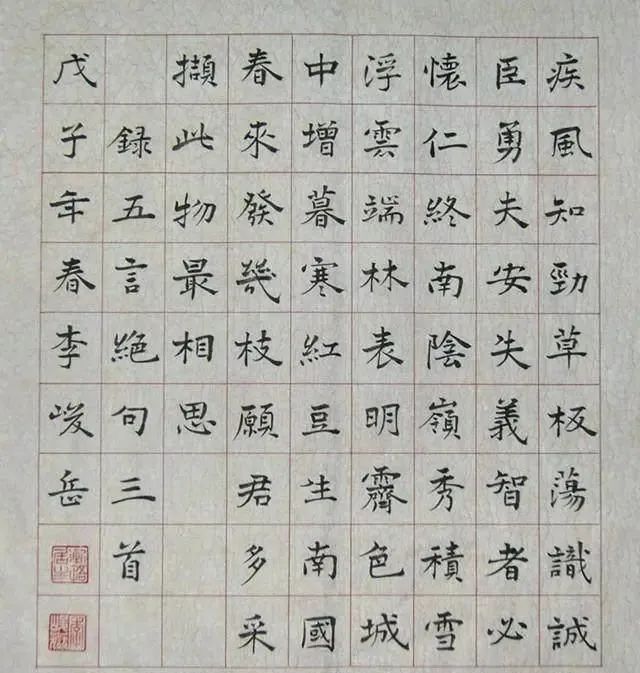 疾風知勁草板蕩識誠
臣勇夫安失義智者必
懷仁終南陰嶺秀積雪
浮雲端林表明霽色城
中增暮寒紅豆生南國
春來發幾枝願君多采
擷此物最相思
録五言絕句三首
戊子年春李峻岳